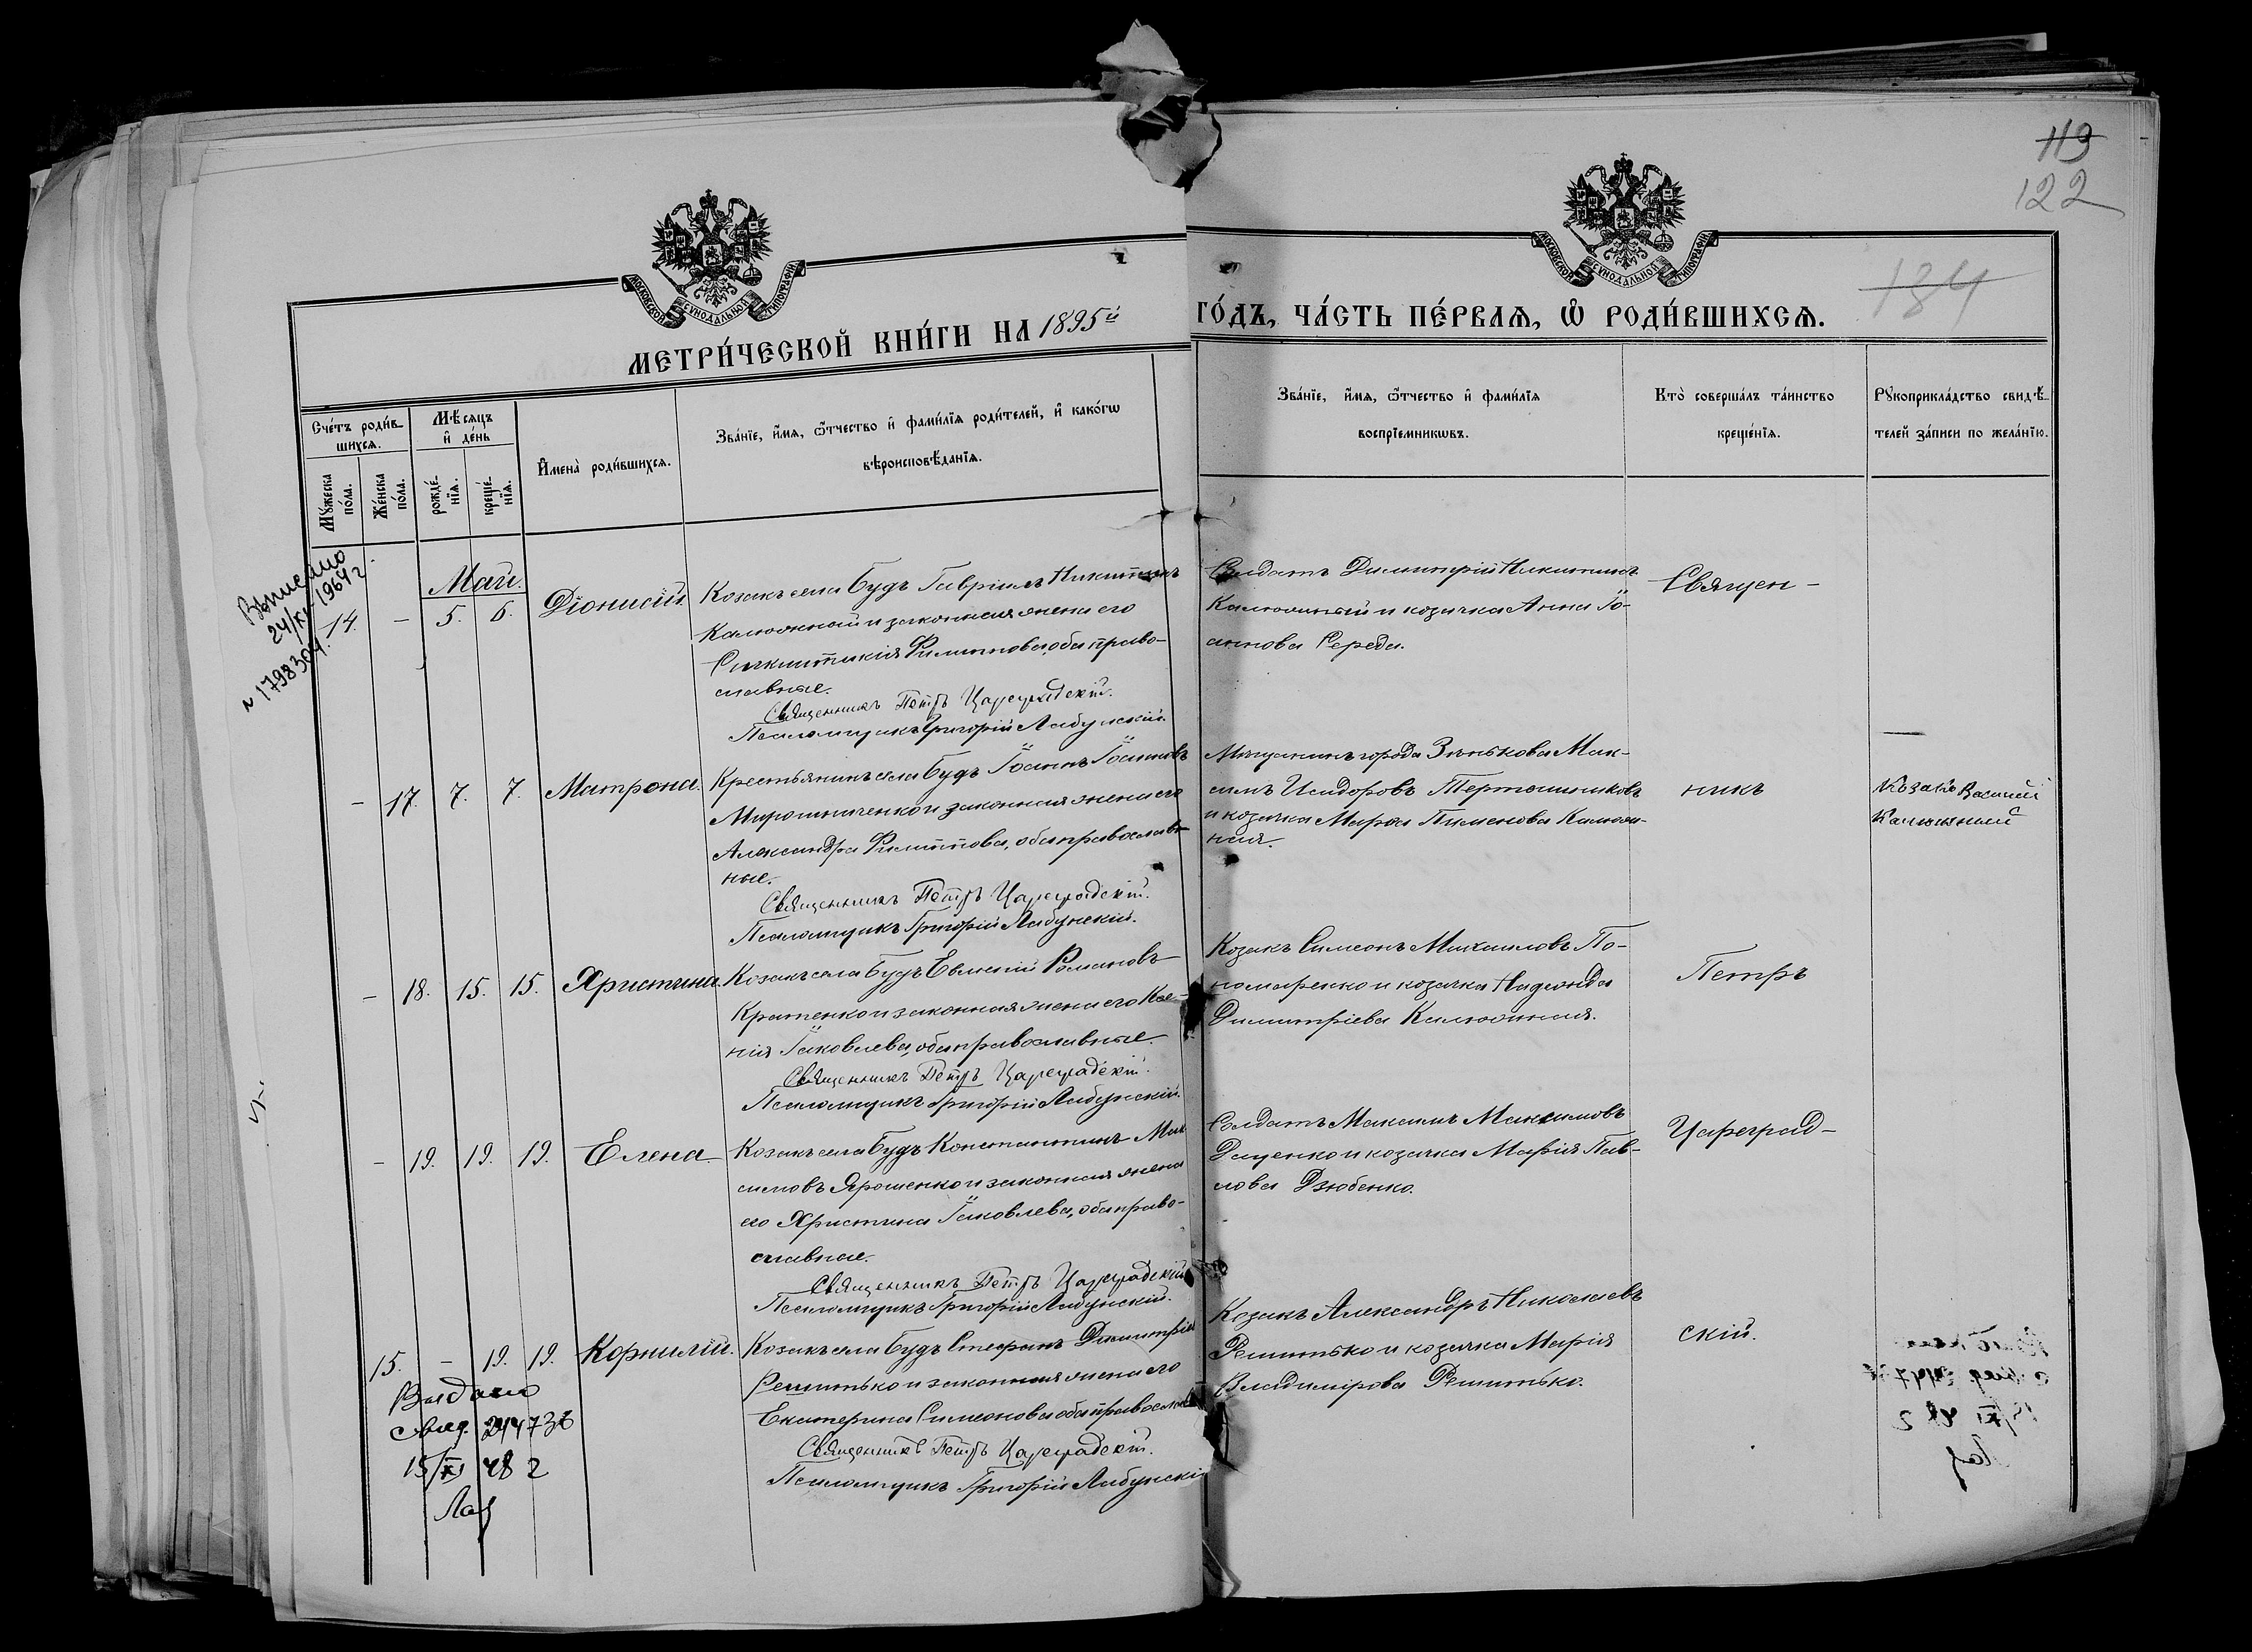 119
122
184
МОСКОВСКОЙ СѴНОДАЛЬНОЙ ТИПОГРАФІИ
МОСКОВСКОЙ СѴНОДАЛЬНОЙ ТИПОГРАФІИ
МЕТРИ́ЧЕСКОЙ КНИ́ГИ НА 1895й ГО́ДЪ, ЧА́СТЬ ПЕ́РВАЯ, Ѡ҆ РОДИ́ВШИХСЯ.
Сче́тъ роди́в-
шихся.
Мѣ́сяцъ
и҆ де́нь
Мꙋ́жеска
по́ла.
Же́нска
по́ла.
рожде́-
нїѧ.
креще́-
нїѧ.
И҆мена̀ роди́вшихся.
Зва́нїе, и҆́мя, ѻ҆́тчество и҆ фами́лїя роди́телей, и҆ како́гѡ
вѣроисповѣ́данїя.
Зва́нїе, и҆́мя, ѻ҆́тчество и҆ фами́лїя
воспрїемникѡвъ.
Кто̀ соверша́лъ та́инство
креще́нїя.
Рꙋкоприкла́дство свидѣ́-
телей за́писи по жела́нїю.
Выписано
24/XI-1964 г.
№ 1798304.
Май.
14. - 5. 6. Діонисій.
Козакъ села Будъ Гавріилъ Никитинъ
Калюжный и законная жена его
Филиппова, оба право-
славные.
Священникъ Петръ Цареградскій.
Псаломщикъ Григорій Лабунскій.
Солдатъ Димитрій Никитинъ
Калюжный и козачка Анна Іо-
аннова Середа.
Священ-
- 17. 7. 7. Матрона.
Крестьянинъ села Будъ Іоаннъ Іоанновъ
Мирошниченко и законная жена его
Александра Филиппова, оба православ-
ные.
Священникъ Петръ Цареградскій.
Псаломщикъ Григорій Лабунскій.
Мѣщанинъ города Зѣнькова Мак-
симъ Исидоровъ Тертошниковъ
и козачка Марѳа Пименова Калюж-
ная.
никъ
Козакъ Василій
Калюжный
- 18. 15. 15. Христина.
Козакъ села Будъ Евменій Романовъ
Кратенко и законная жена его Ксе-
нія Іаковлева, оба православные.
Священникъ Петръ Цареградскій.
Псаломщикъ Григорій Лабунскій.
Козакъ Симеонъ Михаиловъ По-
номаренко и козачка Надежда
Димитріева Калюжная.
Петръ
- 19. 19. 19. Елена.
Козакъ села Будъ Константинъ Мак-
симовъ Ярошенко и законная жена
его Христина Іаковлева, оба право-
славные.
Священникъ Петръ Цареградскій
Псаломщикъ Григорій Лабунскій.
Солдатъ Максимъ Максимовъ
Даценко и козачка Марія Пав-
лова Дзюбенко.
Цареград-
15. - 19. 19. Корнилій.
Козакъ села Будъ Стефанъ Димитріев
Решитько и законная жена его
Екатерина Симеонова оба православ
Священникъ Петръ Цареградскій.
Псаломщикъ Григорій Лабунскій
Козакъ Александръ Николаевъ
Решитько и козачка Марія
Владимірова Решитько.
скій.
Выдано
свид.
15/XI 48 г